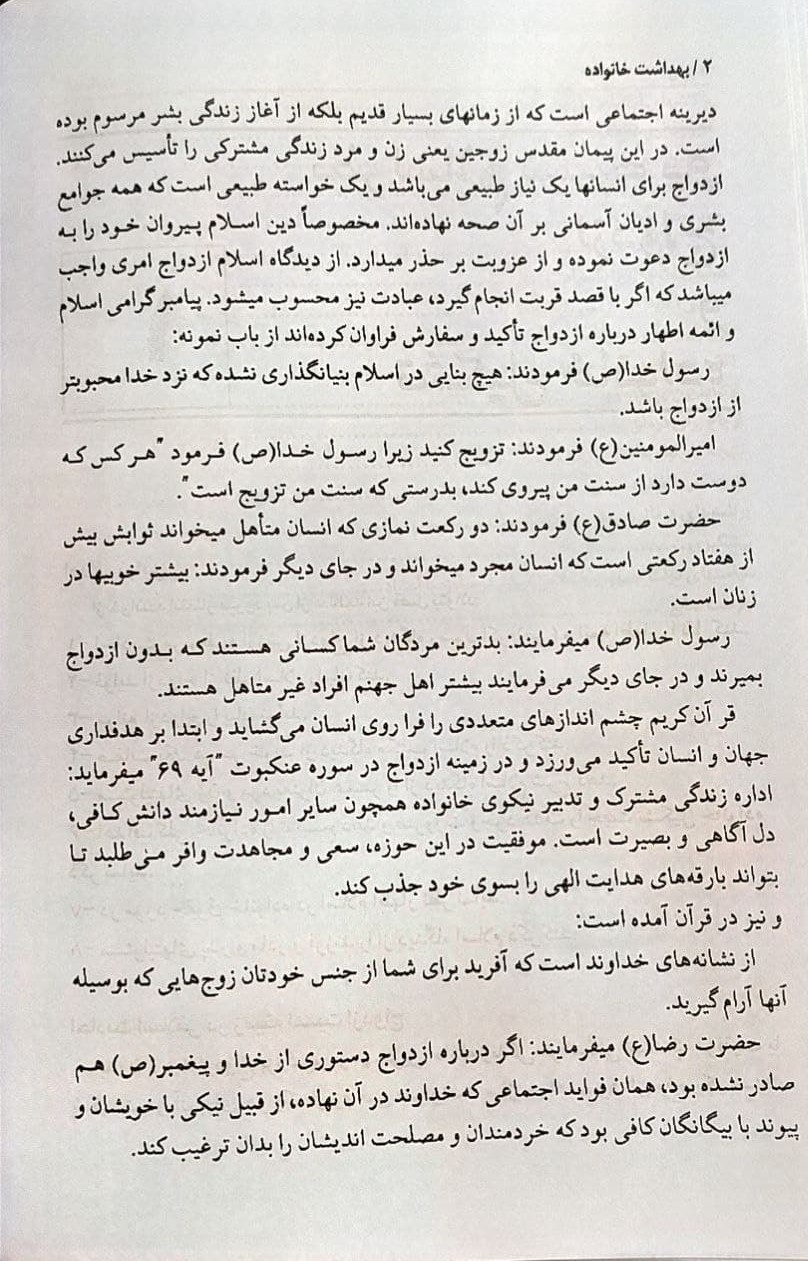 ۲ / بهداشت خانواده
دیرینه اجتماعی است که از زمانهای بسیار قدیم بلکه از آغاز زندگی بشر مرسوم بوده
است. در این پیمان مقدس زوجین یعنی زن و مرد زندگی مشترکی را تأسیس می‌کنند.
ازدواج برای انسانها یک نیاز طبیعی می‌باشد و یک خواسته طبیعی است که همه جوامع
بشری و ادیان آسمانی بر آن صحه نهاده‌اند. مخصوصاً دین اسلام پیروان خود را به
ازدواج دعوت نموده و از عزوبت بر حذر میدارد. از دیدگاه اسلام ازدواج امری واجب
میباشد که اگر با قصد قربت انجام گیرد، عبادت نیز محسوب میشود. پیامبر گرامی اسلام
و ائمه اطهار درباره ازدواج تأکید و سفارش فراوان کرده‌اند از باب نمونه:
رسول خدا(ص) فرمودند: هیچ بنایی در اسلام بنیانگذاری نشده که نزد خدا محبوبتر
از ازدواج باشد.
امیرالمومنین(ع) فرمودند: تزویج کنید زیرا رسول خدا(ص) فرمود "هر کس که
دوست دارد از سنت من پیروی کند، بدرستی که سنت من تزویج است".
حضرت صادق(ع) فرمودند: دو رکعت نمازی که انسان متأهل میخواند ثوابش بیش
از هفتاد رکعتی است که انسان مجرد میخواند و در جای دیگر فرمودند: بیشتر خوبیها در
زنان است.
رسول خدا(ص) میفرمایند: بدترین مردگان شما کسانی هستند که بدون ازدواج
بمیرند و در جای دیگر می‌فرمایند بیشتر اهل جهنم افراد غیر متاهل هستند.
قر آن کریم چشم اندازهای متعددی را فرا روی انسان می‌گشاید و ابتدا بر هدفداری
جهان و انسان تأکید می‌ورزد و در زمینه ازدواج در سوره عنکبوت "آیه ۶۹" میفرماید:
اداره زندگی مشترک و تدبیر نیکوی خانواده همچون سایر امور نیازمند دانش کافی،
دل آگاهی و بصیرت است. موفقیت در این حوزه، سعی و مجاهدت وافر می‌طلبد تا
بتواند بارقه‌های هدایت الهی را بسوی خود جذب کند.
و نیز در قرآن آمده است:
از نشانه‌های خداوند است که آفرید برای شما از جنس خودتان زوج‌هایی که بوسیله
آنها آرام گیرید.
حضرت رضا(ع) میفرمایند: اگر درباره ازدواج دستوری از خدا و پیغمبر(ص) هم
صادر نشده بود، همان فواید اجتماعی که خداوند در آن نهاده، از قبیل نیکی با خویشان و
پیوند با بیگانگان کافی بود که خردمندان و مصلحت اندیشان را بدان ترغیب کند.